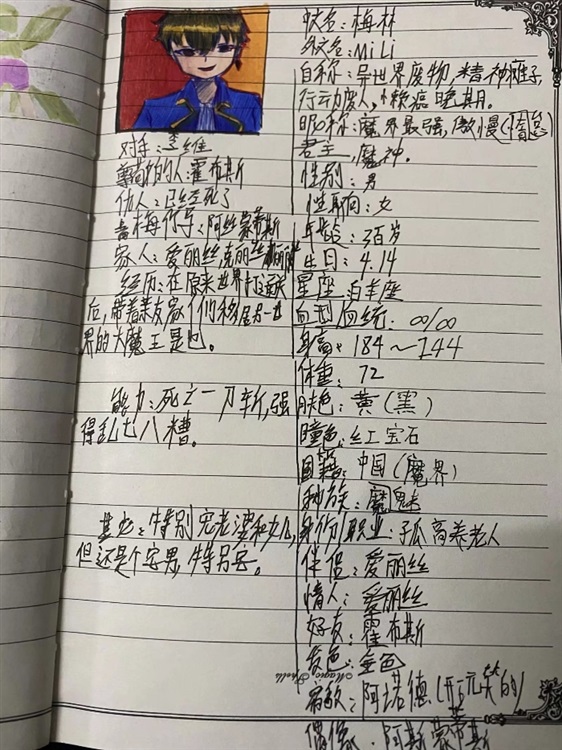 中文名：梅林
外文名：MiLi
自称：异世界废物，精神疯子，
行动废人，懒癌晚期。
昵称：魔界最强，傲慢
君主，魔神。
性别：男
性取向：女
年龄：35百岁
生日：4.14
星座：白羊座
血型血统：∞/∞
身高：184～144
体重：72
肤色：黄(黑)
瞳色：红宝石
国籍：中国(魔界)
种族：魔魅
身份/职业：孤高养老人
伴侣：爱丽丝
情人：爱丽丝
好友：霍布斯
爱色：金色
宿敌：阿塔德(开玩笑的)
偶像：阿斯蒙蒂斯
对手：兰维
尊敬的人：霍布斯
仇人：已经死了
青梅竹马：阿丝蒙蒂斯
家人：爱丽丝，克丽丝
经历：在原来世界
后，带着亲友家人们移居另一世
界的大魔王是也。
能力：死亡一刀斩，强
得乱七八糟。
其它：特别宠老婆和女儿，
但还是个宅男，特另宅。
Magic Spell